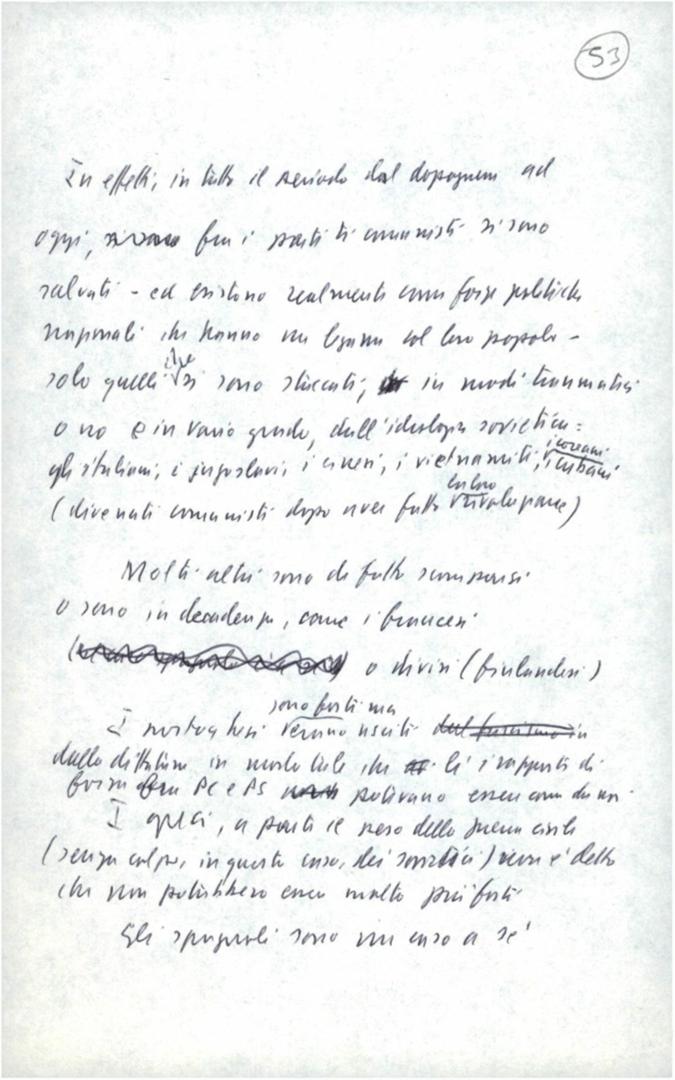 53
In effetti, in tutto il periodo dal dopoguerra ad
oggi, fra i partiti comunisti si sono
salvati - ed esistono realmente come forze politiche
nazionali che hanno un legame col loro popolo -
solo quelli che si sono staccati, in modi traumatici
o no e in vario grado, dall'ideologia sovietica:
gli italiani, i jugoslavi, i cinesi, i vietnamiti, i coreani i cubani
(divenuti comunisti dopo aver fatto la loro rivoluzione)
Molti altri sono di fatto scomparsi
o sono in decadenza, come i francesi
o divisi (finlandesi)
I portoghesi sono forti ma erano usciti
dalla dittatura in modo tale che lì i rapporti di
forza fra PC e PS potevano essere come da noi
I greci, a parte il peso della guerra civile
(senza colpa, in questo caso, dei sovietici) non è detto
che non potrebbero essere molto più forti
Gli spagnoli sono un caso a sé